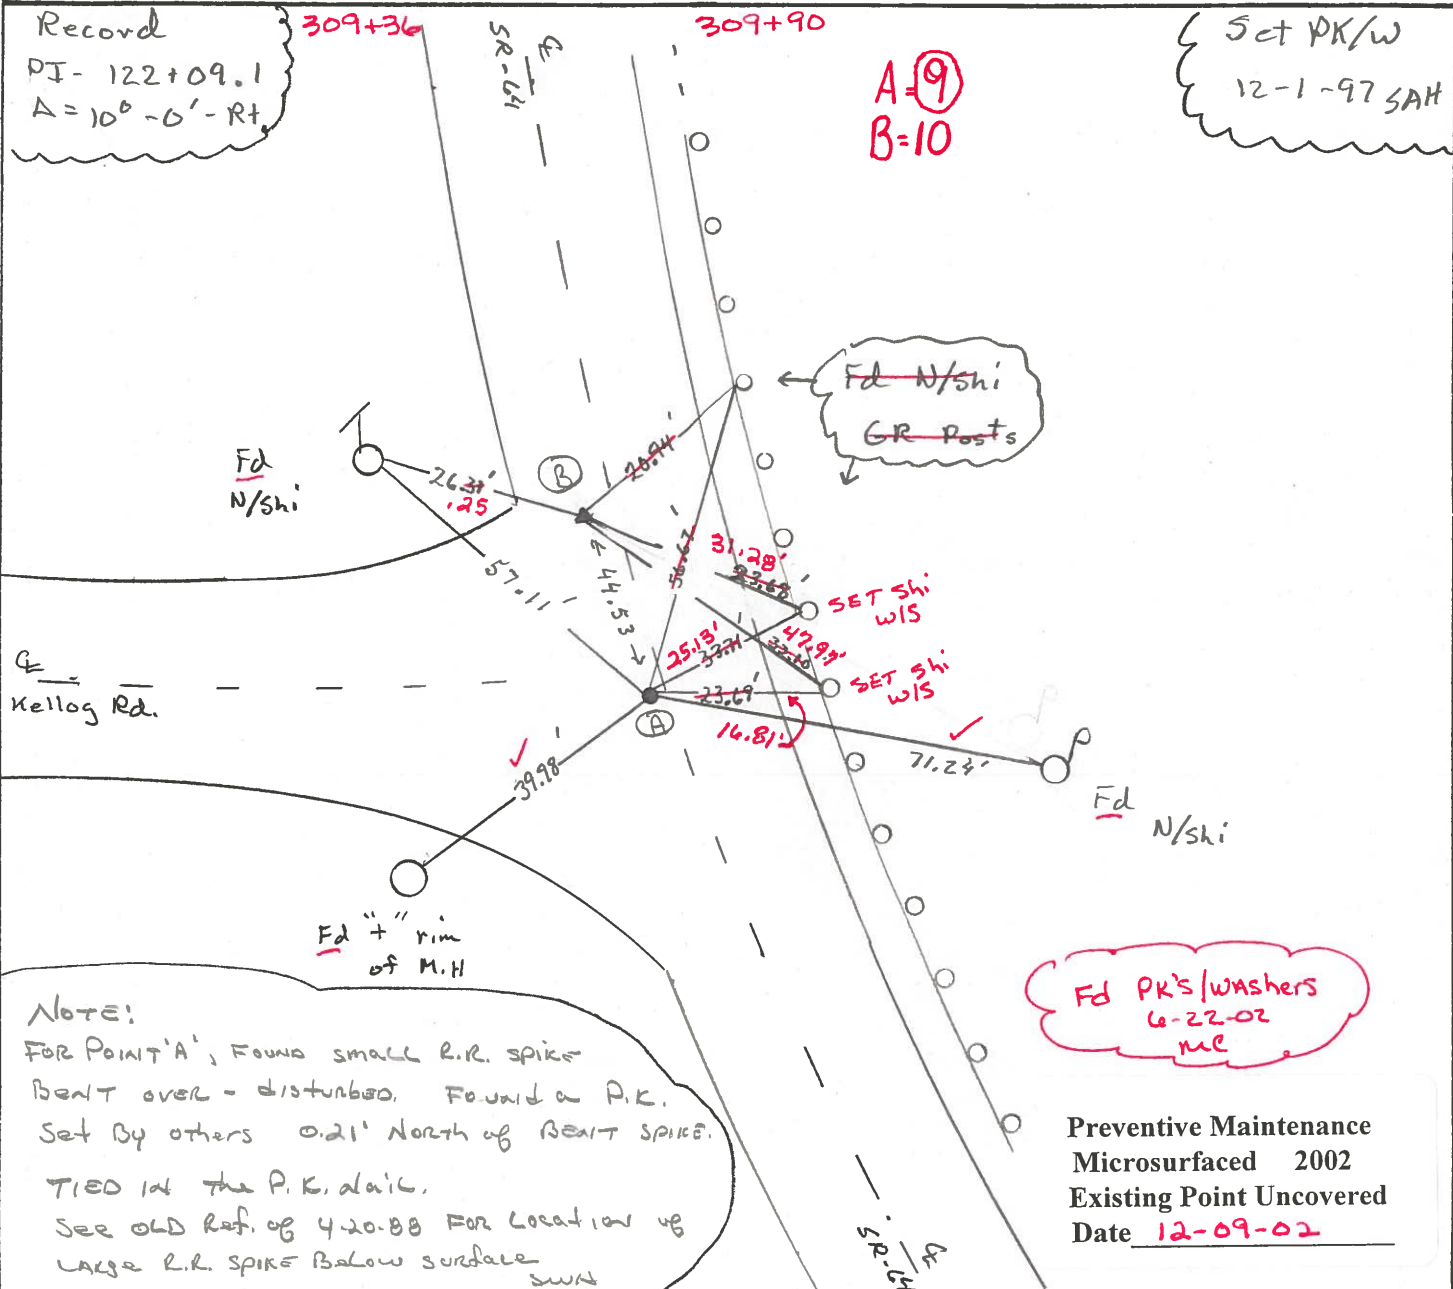 Record
PI- 122+09.1
Δ = 10° -0' - Rt.
309+36
SR-64
℄
309+90
A=9
B=10
Set PK/W
12-1-97 SAH
Fd N/Shi
GR Posts
Fd
N/Shi
26.31'
.25
B
20.94'
57.11'
44.53
56.67
31.28'
23.68'
SET Shi
W/S
25.13'
33.71
47.97'
SET Shi
W/S
23.69'
A
16.81'
71.24'
℄
Kellog Rd.
39.98'
Fd
N/Shi
Fd "+" rim
of M.H
NOTE:
FOR POINT 'A', FOUND small R.R. SPIKE
BENT OVER - disturbed. Found a P.K.
Set By others 0.21' North of BENT SPIKE.
TIED IN the P.K. Nail.
See OLD Ref. of 4-20-88 FOR Location of
LARGE R.R. SPIKE Below surface
SWH
Fd PK's/WAshers
6-22-02
MC
Preventive Maintenance
Microsurfaced 2002
Existing Point Uncovered
Date 12-09-02
℄
SR-64